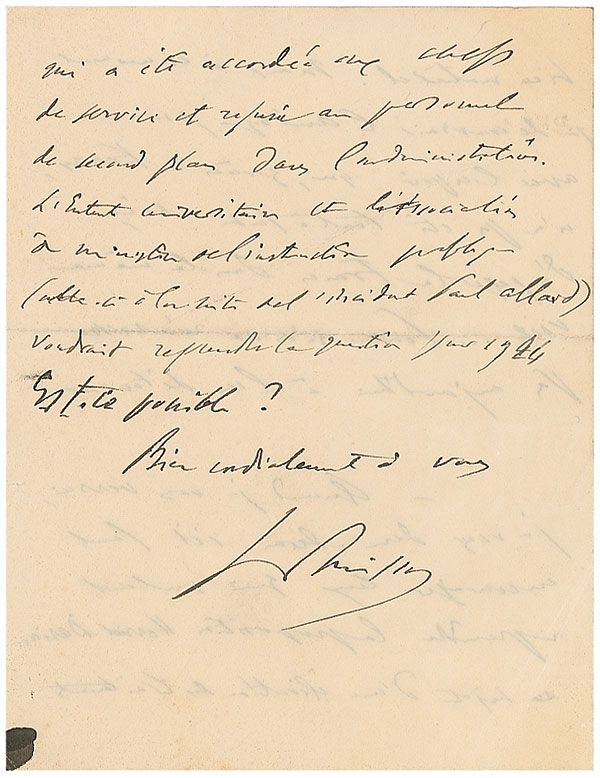 qui a été accordée aux chefs
de service et refusée au personnel
de second plan dans l'administration.
L'Entente universitaire et l'Association
du ministère de l'instruction publique
(celle-ci à la suite de l'incident Paul Allard)
voudrait reprendre la question pour 1924
Est-ce possible ?
Bien cordialement à vous